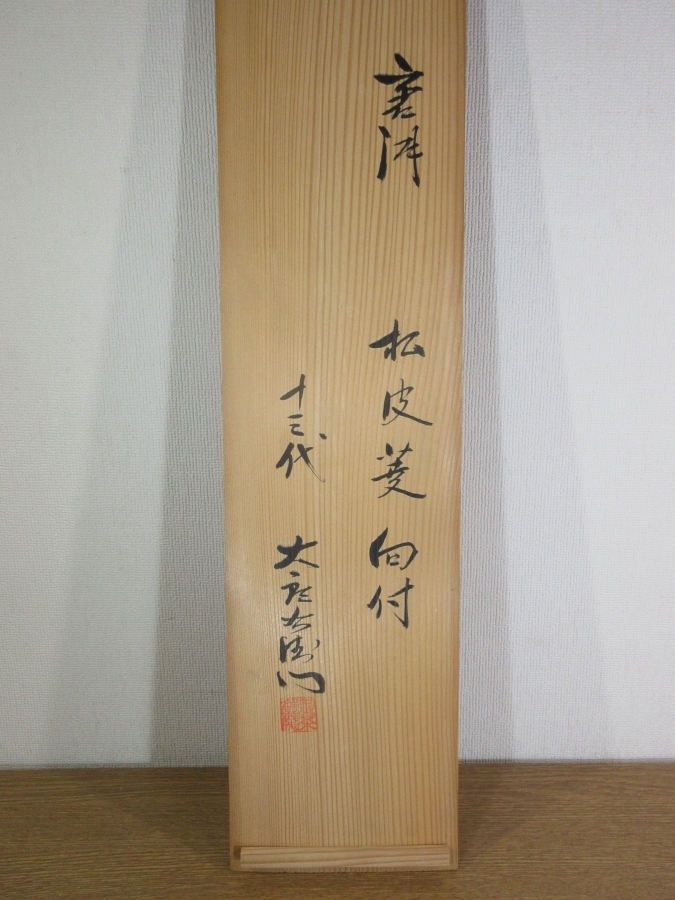 唐津　松皮菱　向付
十三代　太郎右衛門